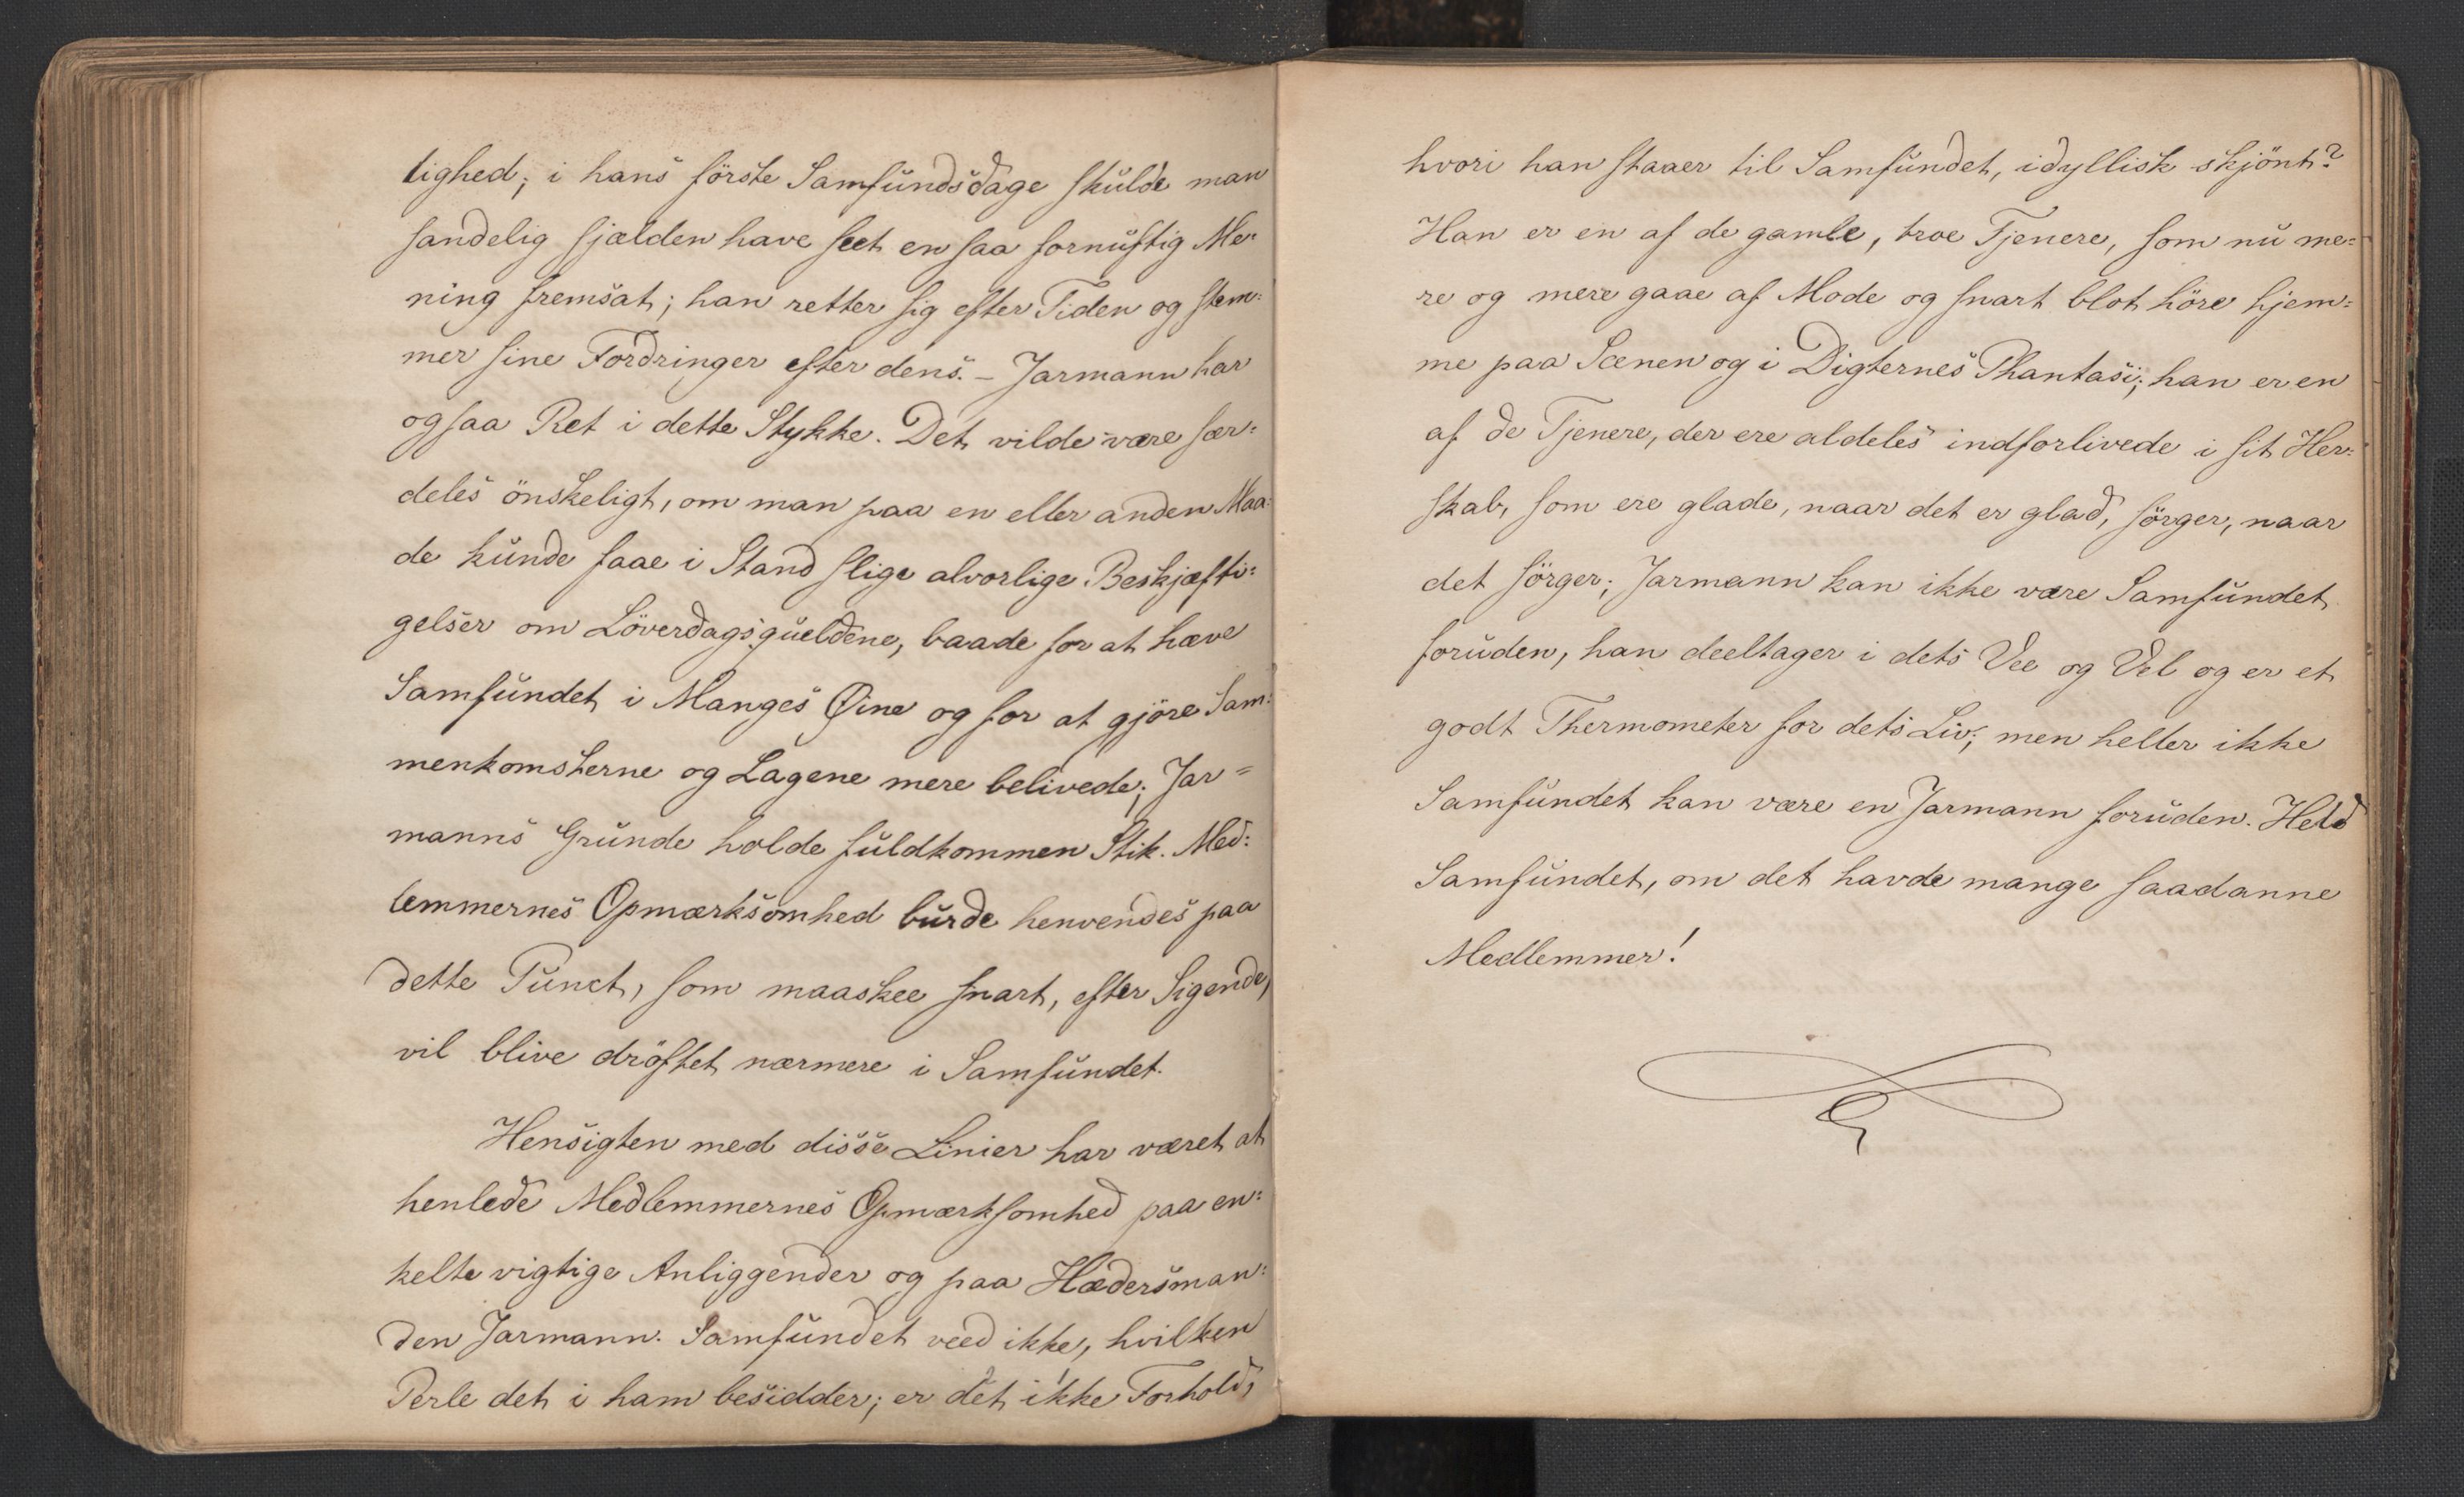 lighed; i hans förste Samfundsdage skulde man
sandelig sjælden have seet en saa fornuftig Me-
ning fremsat; han retter sig efter Tiden og stem-
mer sine Fordringer efter dens. – Jarmann har
ogsaa Ret i dette Stykke. Det vilde være sær-
deles önskeligt, om man paa en eller anden Maa-
de kunde faae i Stand slige alvorlige Beskjæfti-
gelser om Löverdagsqueldene, baade for at hæve
Samfundet i Manges Øine og for at gjöre Sam-
menkomsterne og Lagene mere belivede; Jar=
manns Grunde holde fuldkommen Stik. Med-
lemmernes Opmærksomhed burde henvendes paa
dette Punct, som maaskee snart, efter Sigende,
vil blive dröftet nærmere i Samfundet.
Hensigten med disse Linier har været at
henlede Medlemmernes Opmærksomhed paa en-
kelte vigtige Anliggender og paa Hædersman-
den Jarmann. Samfundet veed ikke, hvilken
Perle det i ham besidder; er det ikke Forhold,
hvori han staaer til Samfundet, idyllisk skjönt?
Han er en af de gamle, troe Tjenere, som nu me=
re og mere gaae af Mode og snart blot höre hjem=
me paa Scenen og i Digternes Phantasi; han er en
af de Tjenere, der ere aldeles indforlivede i sit Her-
skab, som ere glade, naar det er glad, sörger, naar
det sörger; Jarmann kan ikke være Samfundet
foruden, han deeltager i dets Vee og Vel og er et
godt Thermometer for dets Liv; men heller ikke
Samfundet kan være en Jarmann foruden. Held
Samfundet, om det havde mange saadanne
Medlemmer!